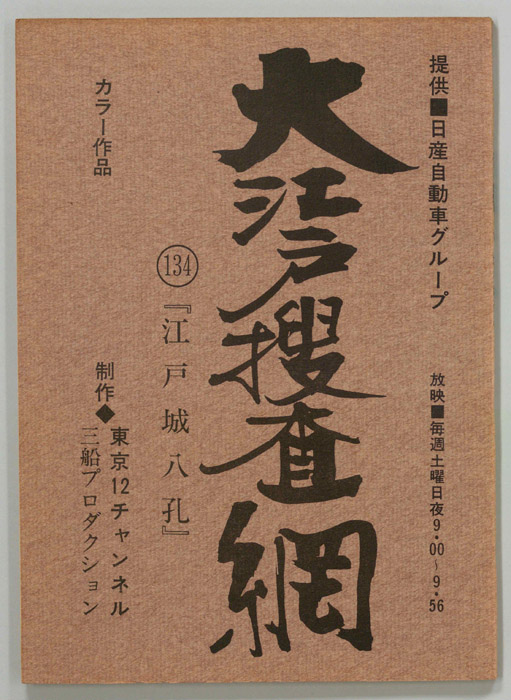 提供■日産自動車グループ
放映■毎週土曜日夜9・00〜9・56
大江戸捜査網
134
『江戸城八孔』
カラー作品
制作◆東京12チャンネル
三船プロダクション